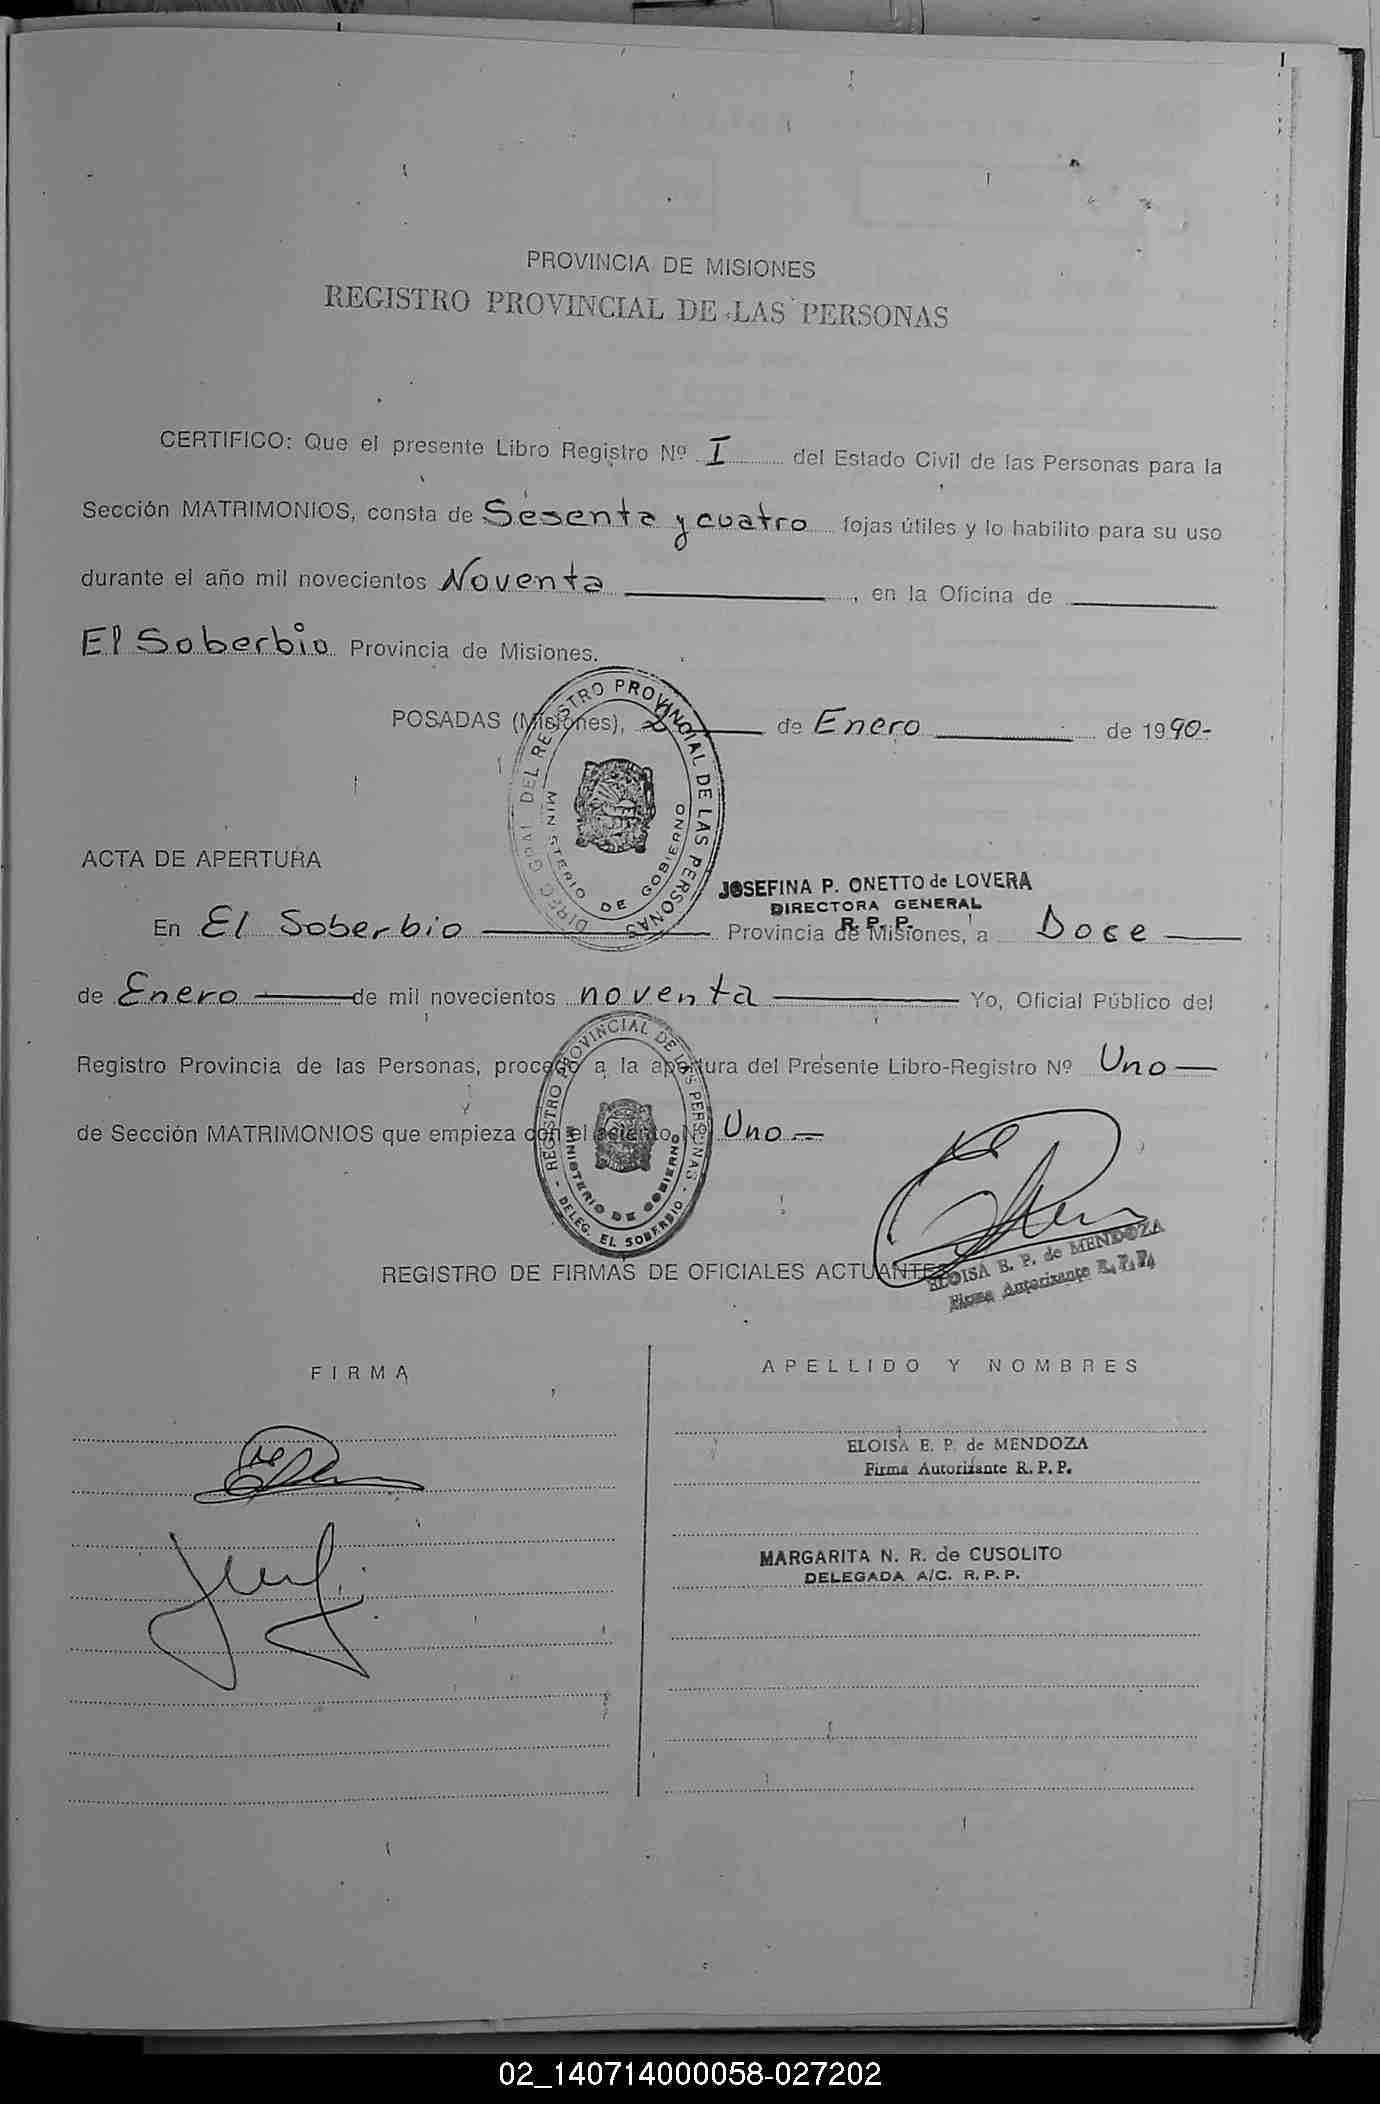 PROVINCIA DE MISIONES
REGISTRO PROVINCIAL DE LAS PERSONAS
CERTIFICO: Que el presente Libro Registro Nº I del Estado Civil de las Personas para la
Sección MATRIMONIOS, consta de Sesenta y cuatro fojas útiles y lo habilito para su uso
durante el año mil novecientos Noventa, en la Oficina de
El Soberbio Provincia de Misiones.
POSADAS (Misiones), 2 de Enero de 1990-
DIREC. GRAL. DEL REGISTRO PROVINCIAL DE LAS PERSONAS
MINISTERIO DE GOBIERNO
ACTA DE APERTURA
JOSEFINA P. ONETTO de LOVERA
DIRECTORA GENERAL
R. P. P.
En El Soberbio Provincia de Misiones, a Doce
de Enero de mil novecientos noventa Yo, Oficial Público del
Registro Provincia de las Personas, procedo a la apertura del Presente Libro-Registro Nº Uno
de Sección MATRIMONIOS que empieza con el asiento Nº Uno
REGISTRO PROVINCIAL DE LAS PERSONAS - DELEG. EL SOBERBIO -
MINISTERIO DE GOBIERNO
ELOISA E. P. de MENDOZA
Firma Autorizante R. P. P.
REGISTRO DE FIRMAS DE OFICIALES ACTUANTES
FIRMA APELLIDO Y NOMBRES
ELOISA E. P. de MENDOZA
Firma Autorizante R. P. P.
MARGARITA N. R. de CUSOLITO
DELEGADA A/C. R. P. P.
02_140714000058-027202